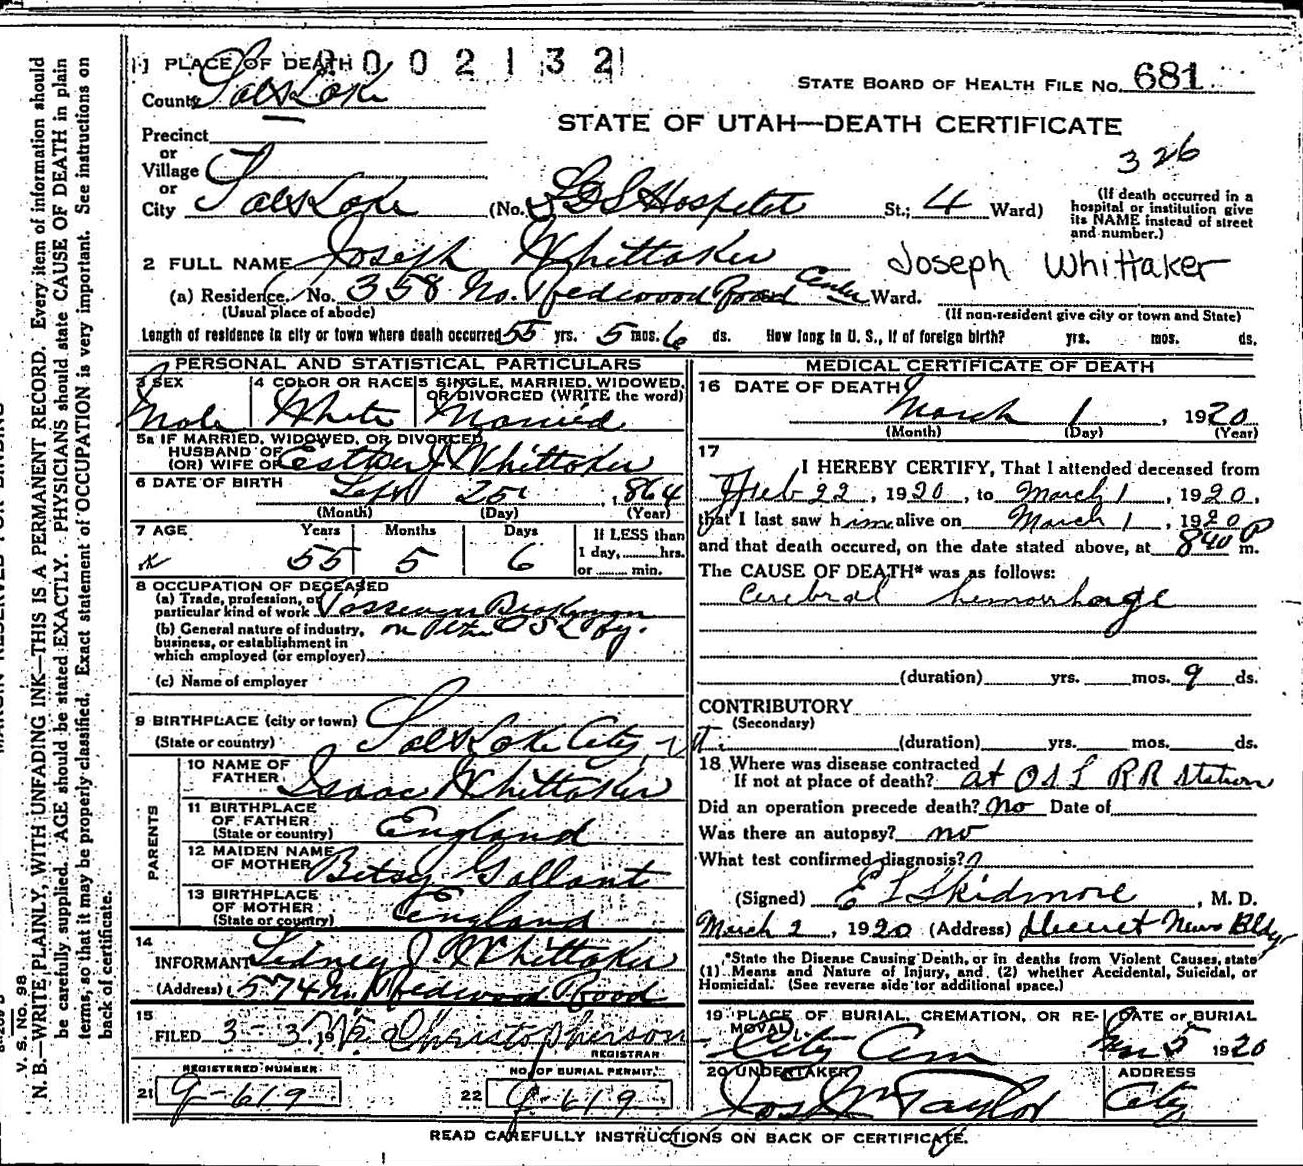 1 PLACE OF DEATH 0002132
STATE BOARD OF HEALTH FILE No. 681
County Salt Lake
STATE OF UTAH—DEATH CERTIFICATE
326
Precinct
or
Village
or
City Salt Lake (No. LDS Hospital St.; 4 Ward)
(If death occurred in a hospital or institution give its NAME instead of street and number.)
2 FULL NAME Joseph Whittaker Joseph Whittaker
(a) Residence. No. 358 No. Redwood Road Center Ward.
(Usual place of abode) (If non-resident give city or town and State)
Length of residence in city or town where death occurred 55 yrs. 5 mos. 6 ds. How long in U. S., if of foreign birth? yrs. mos. ds.
PERSONAL AND STATISTICAL PARTICULARS
3 SEX Male
4 COLOR OR RACE White
5 SINGLE, MARRIED, WIDOWED, OR DIVORCED (WRITE the word) Married
5a IF MARRIED, WIDOWED, OR DIVORCED
HUSBAND OF
(OR) WIFE OF Esther J Whittaker
6 DATE OF BIRTH Sept 25, 1864
(Month) (Day) (Year)
7 AGE Years Months Days If LESS than
1 day, hrs.
or min.
55 5 6
8 OCCUPATION OF DECEASED
(a) Trade, profession, or
particular kind of work Passenger Brakeman
(b) General nature of industry, on the O S L Ry.
business, or establishment in
which employed (or employer)
(c) Name of employer
9 BIRTHPLACE (city or town)
(State or country) Salt Lake City, Ut.
PARENTS
10 NAME OF
FATHER Isaac Whittaker
11 BIRTHPLACE
OF FATHER
(State or country) England
12 MAIDEN NAME
OF MOTHER Betsy Gallant
13 BIRTHPLACE
OF MOTHER
(State or country) England
14
INFORMANT Sidney J Whittaker
(Address) 574 No. Redwood Road
15
FILED 3-3 19 Christopherson
REGISTRAR
REGISTERED NUMBER
21 9-619
NO. OF BURIAL PERMIT
22 9-619
MEDICAL CERTIFICATE OF DEATH
16 DATE OF DEATH March 1, 1920
(Month) (Day) (Year)
17
I HEREBY CERTIFY, That I attended deceased from
Feb 22, 1920, to March 1, 1920,
that I last saw him alive on March 1, 1920
and that death occured, on the date stated above, at 840 P m.
The CAUSE OF DEATH* was as follows:
Cerebral hemorrhage
(duration) yrs. mos. 9 ds.
CONTRIBUTORY
(Secondary)
(duration) yrs. mos. ds.
18 Where was disease contracted
If not at place of death? at O S L R R Station
Did an operation precede death? No Date of
Was there an autopsy? no
What test confirmed diagnosis?
(Signed) E L Skidmore, M. D.
March 2, 1920 (Address) Deseret News Bldg
*State the Disease Causing Death, or in deaths from Violent Causes, state
(1) Means and Nature of Injury, and (2) whether Accidental, Suicidal, or
Homicidal. (See reverse side for additional space.)
19 PLACE OF BURIAL, CREMATION, OR REMOVAL City Cem
DATE or BURIAL Mar 5 1920
20 UNDERTAKER Jos Wm Taylor
ADDRESS City
READ CAREFULLY INSTRUCTIONS ON BACK OF CERTIFICATE.
MARGIN RESERVED FOR BINDING
V. S. No. 98
N. B.—WRITE PLAINLY, WITH UNFADING INK—THIS IS A PERMANENT RECORD. Every item of information should
be carefully supplied. AGE should be stated EXACTLY. PHYSICIANS should state CAUSE OF DEATH in plain
terms, so that it may be properly classified. Exact statement of OCCUPATION is very important. See instructions on
back of certificate.